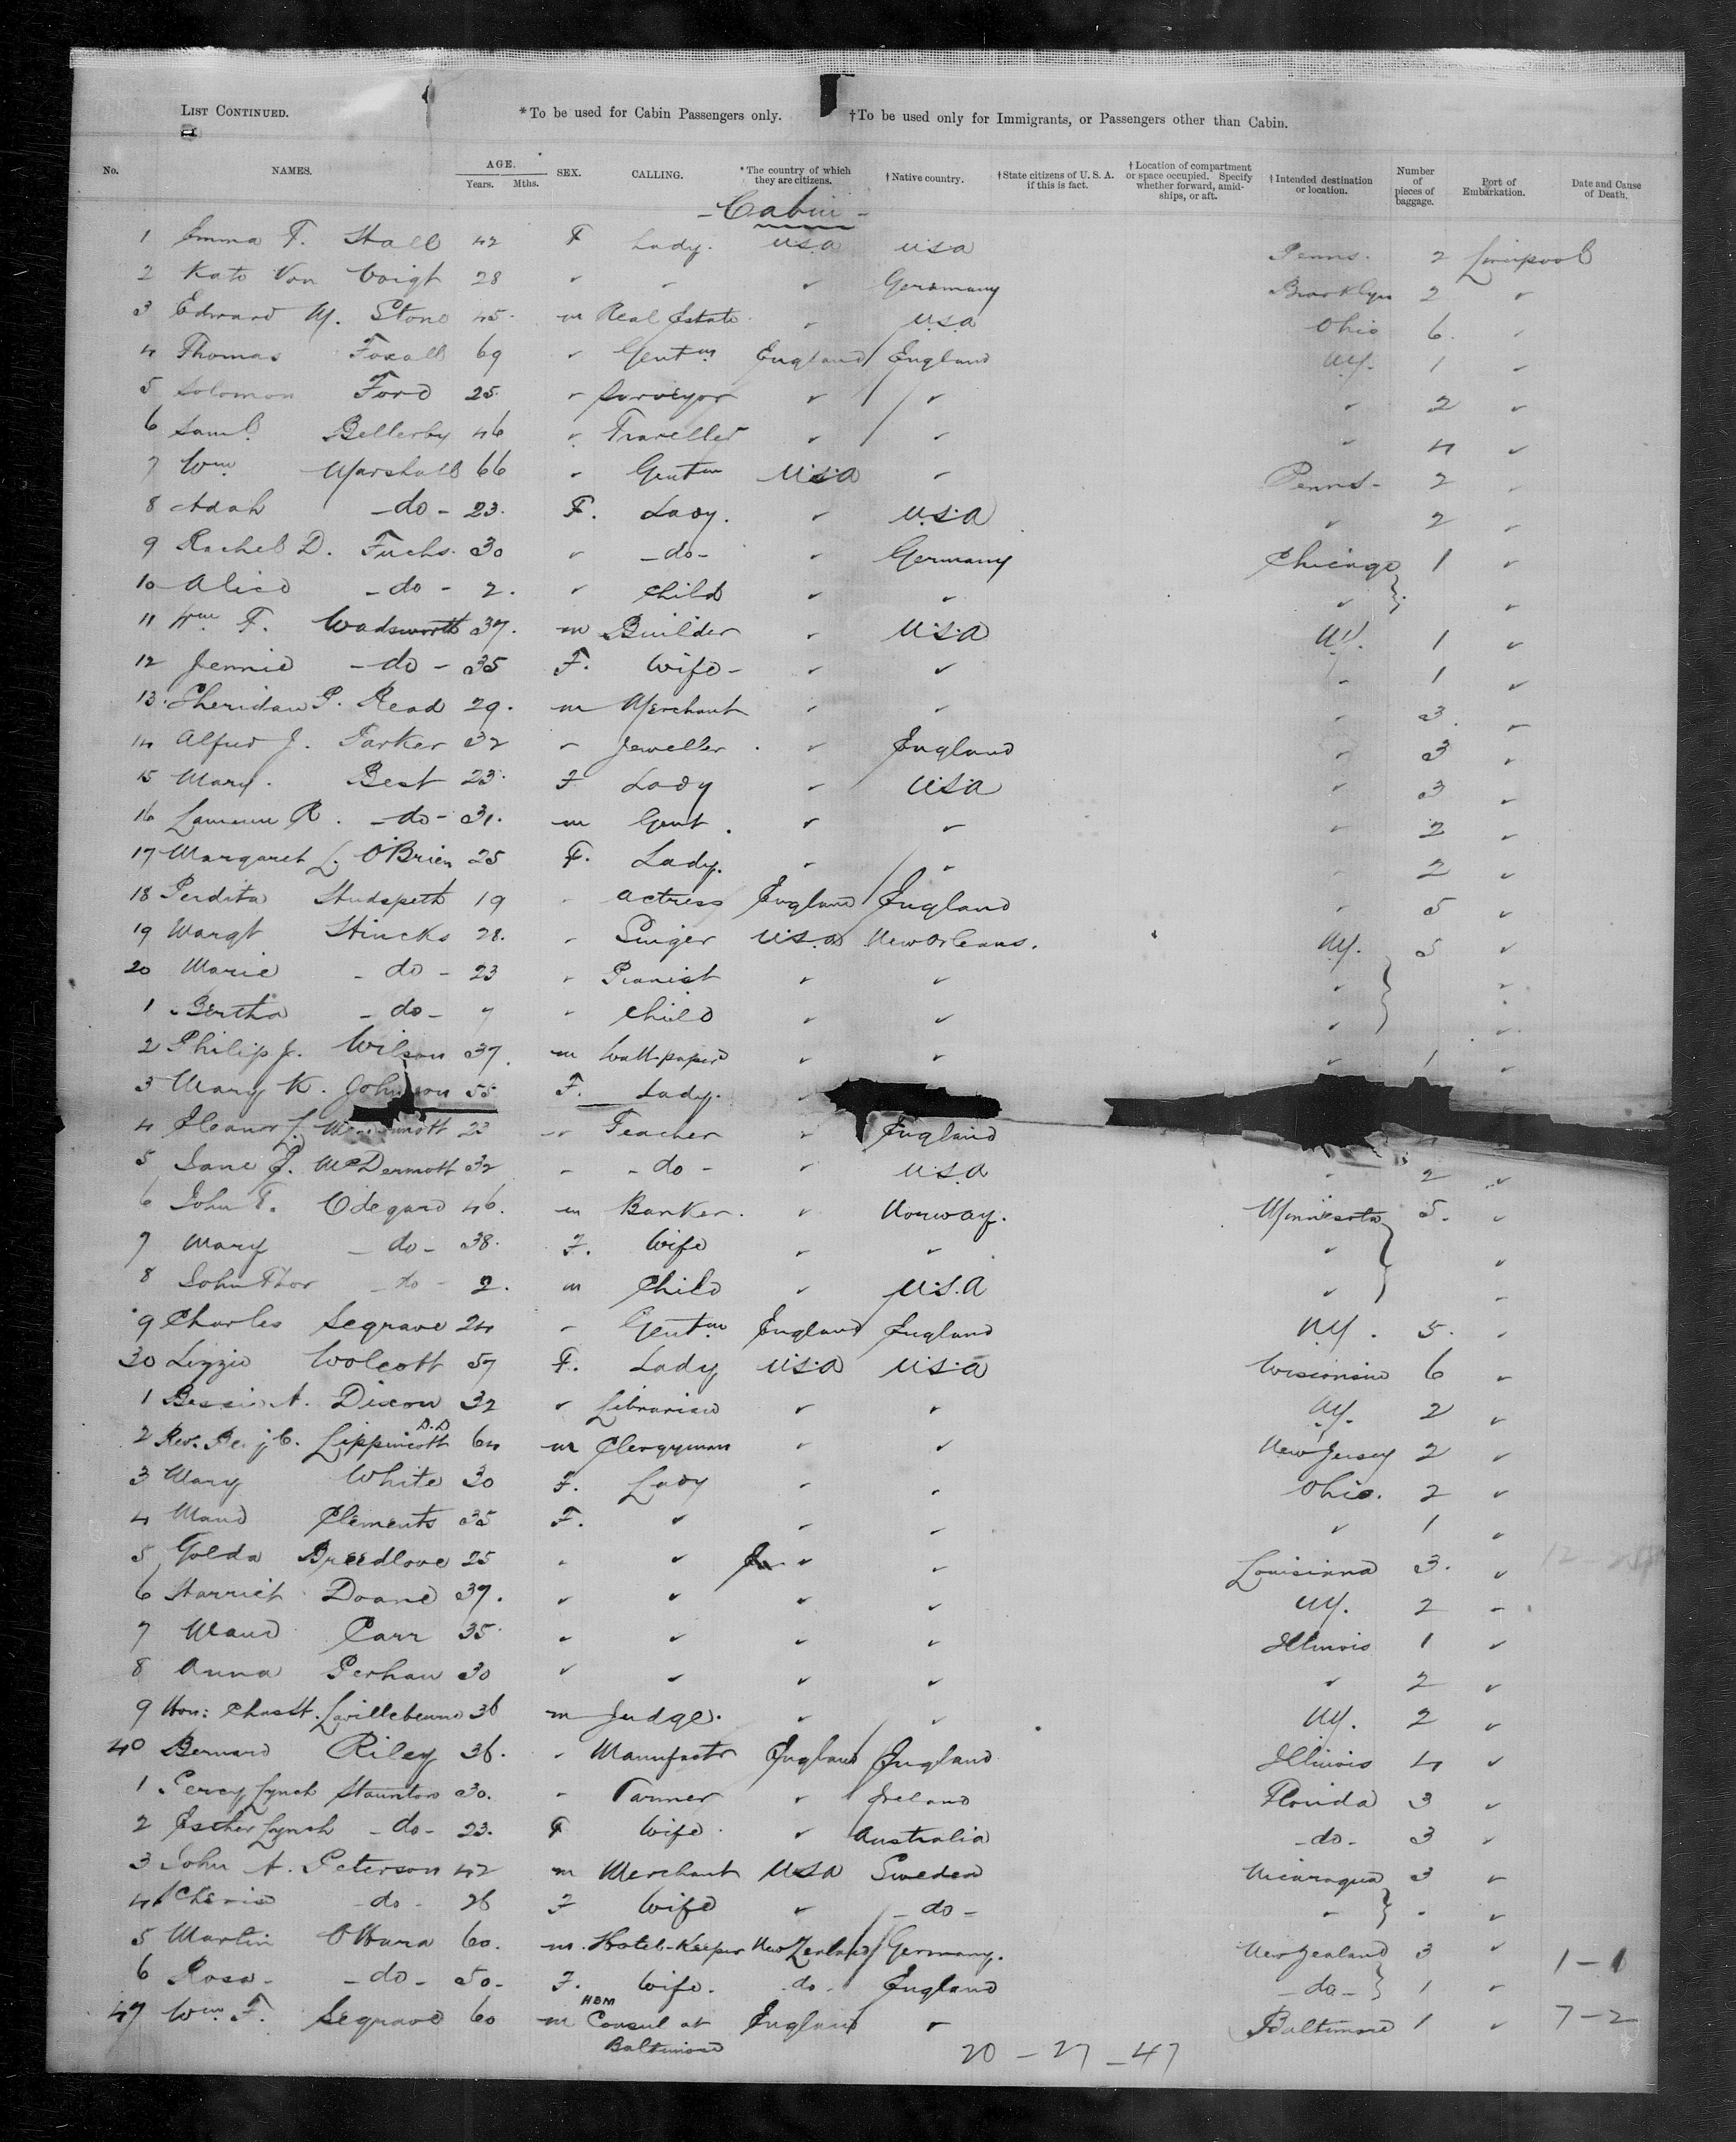 LIST CONTINUED. *To be used for Cabin Passengers only. †To be used only for Immigrants, or Passengers other than Cabin.
No. NAMES. AGE. Years. Mths. SEX. CALLING. *The country of which they are citizens. †Native country. †State citizens of U. S. A. if this is fact. †Location of compartment or space occupied. Specify whether forward, amidships, or aft. †Intended destination or location. Number of pieces of baggage. Port of Embarkation. Date and Cause of Death.
- Cabin -
1 Emma F. Hall 42 F Lady. USA USA Penns. 2 Liverpool
2 Kate Von Voigt 28 " " " Germany Brooklyn 2 "
3 Edward M. Stone 45 m Real Estate " USA Ohio 6 "
4 Thomas Foxall 69 " Gentm England England NY. 1 "
5 Solomon Ford 25 " Surveyor " " " 2 "
6 Saml. Bellerby 46 " Traveller " " " 4 "
7 Wm. Marshall 66 " Gentm USA " Penns- 2 "
8 Adah - do - 23 F. Lady. " USA " 2 "
9 Rachel D. Fuchs 30 " - do - " Germany Chicago 1 "
10 Alice - do - 2. " Child " " " "
11 Wm F. Wadsworth 37. m Builder " USA NY. 1 "
12 Jennie - do - 35 F. Wife - " " " 1 "
13 Sheridan P. Read 29. m Merchant " " " 3 "
14 Alfred J. Parker 32 " Jeweller " England " 3 "
15 Mary. Best 23 F Lady " USA " 3 "
16 R. - do - 31. m Gent. " " " 2 "
17 Margaret L. O'Brien 25 F. Lady. " " " 2 "
18 Perdita Hudspeth 19 " Actress England England " 5 "
19 Margt Hincks 28. " Singer USA New Orleans. NY. 5 "
20 Marie - do - 23 " Pianist " " " "
1 Bertha - do - 7 " Child " " " "
2 Philip J. Wilson 37. m Wall-paper " " " 1 "
3 Mary K. Johnson 55 F. Lady. "
4 Eleanor L. 23 " Teacher " England
5 Jane P. McDermott 32 " - do - " USA " 2 "
6 John T. Odegard 46. m Banker. " Norway. Minnesota 5. "
7 Mary - do - 38. F. Wife " " " "
8 John Thor - do - 2. m Child " USA " "
9 Charles Segrave 24 " Gentm England England NY. 5. "
30 Lizzie Wolcott 57 F. Lady USA USA Wisconsin 6 "
1 Bessie A. Dixon 32 " Librarian " " NY. 2 "
2 Rev. Benj C. Lippincott D.D 64 m Clergyman " " New Jersey 2 "
3 Mary White 30 F. Lady " " Ohio. 2 "
4 Maud Clements 35 F. " " " " 1 "
5 Golda Breedlove 25 " " " " Louisiana 3. "
6 Harriet Doane 37. " " " " NY. 2 "
7 Maud Carr 35 " " " " Illinois 1 "
8 Anna Perhau 30 " " " " " 2 "
9 Hon: Chas H. 36 m Judge. " " NY. 2 "
40 Bernard Riley 36. " Manufactr England England Illinois 4 "
1 Percy Lynch Staunton 30. " Farmer " Ireland Florida 3 "
2 Esther Lynch - do - 23. F Wife. " Australia - do - 3 "
3 John A. Peterson 42 m Merchant USA Sweden Nicaragua 3 "
4 - do - 26 F Wife " - do - " " "
5 Martin O'Hara 60. m. Hotel-Keeper New Zealand Germany. New Zealand 3 " 1 - 1
6 Rosa - - do - 50 - F. Wife. do. England - do - 1 "
47 Wm. F. Segrave 60 m HBM Consul at Baltimore England " Baltimore 1 " 7 - 2
20 - 27 - 47